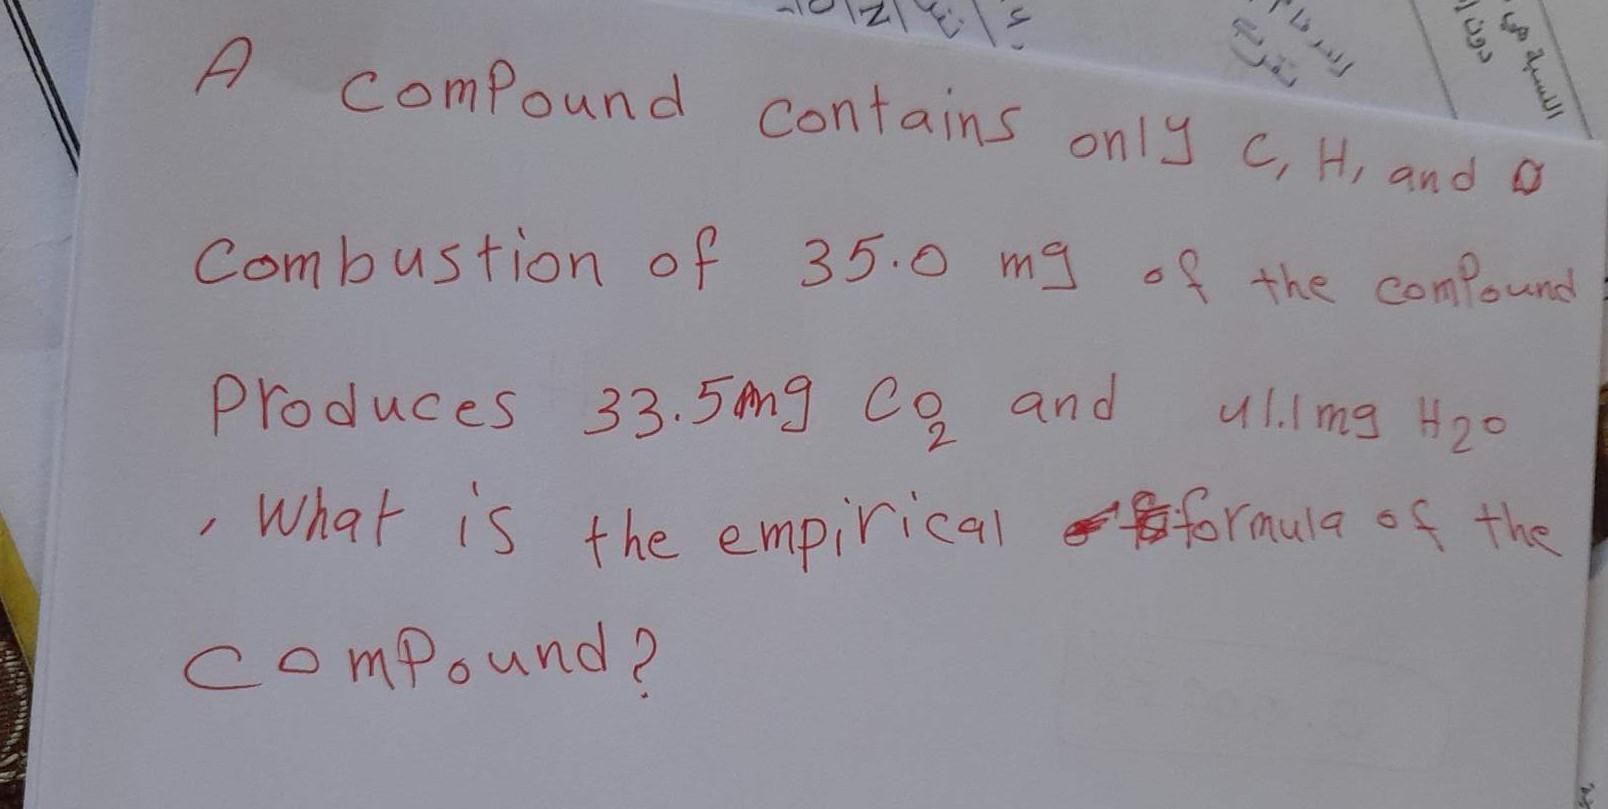 A compound contains only C, H, and O
Combustion of 35.0 mg of the compound
Produces 33.5mg CO2 and 41.1mg H2O
, What is the empirical formula of the
compound?
النسبة هي
دون